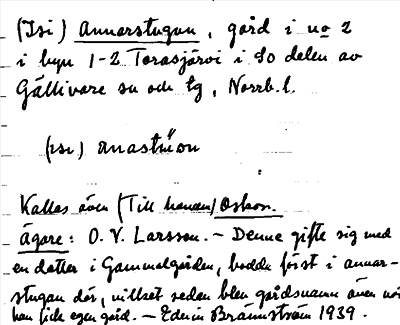 (Isi) Annarstugan, gård i no 2
i byn 1-2 Torasjärvi i SO delen av
Gällivare sn och tg, Norrb. l.
(isi) anastuon
Kallas även (Till hanen) Oskon.
Ägare: O. V. Larsson. – Denne gifte sig med
en dotter i Gammelgården, bodde först i annar-
stugan där, vilket sedan blev gårdsnamn även när
han fick egen gård. – Edvin Brännström 1939.